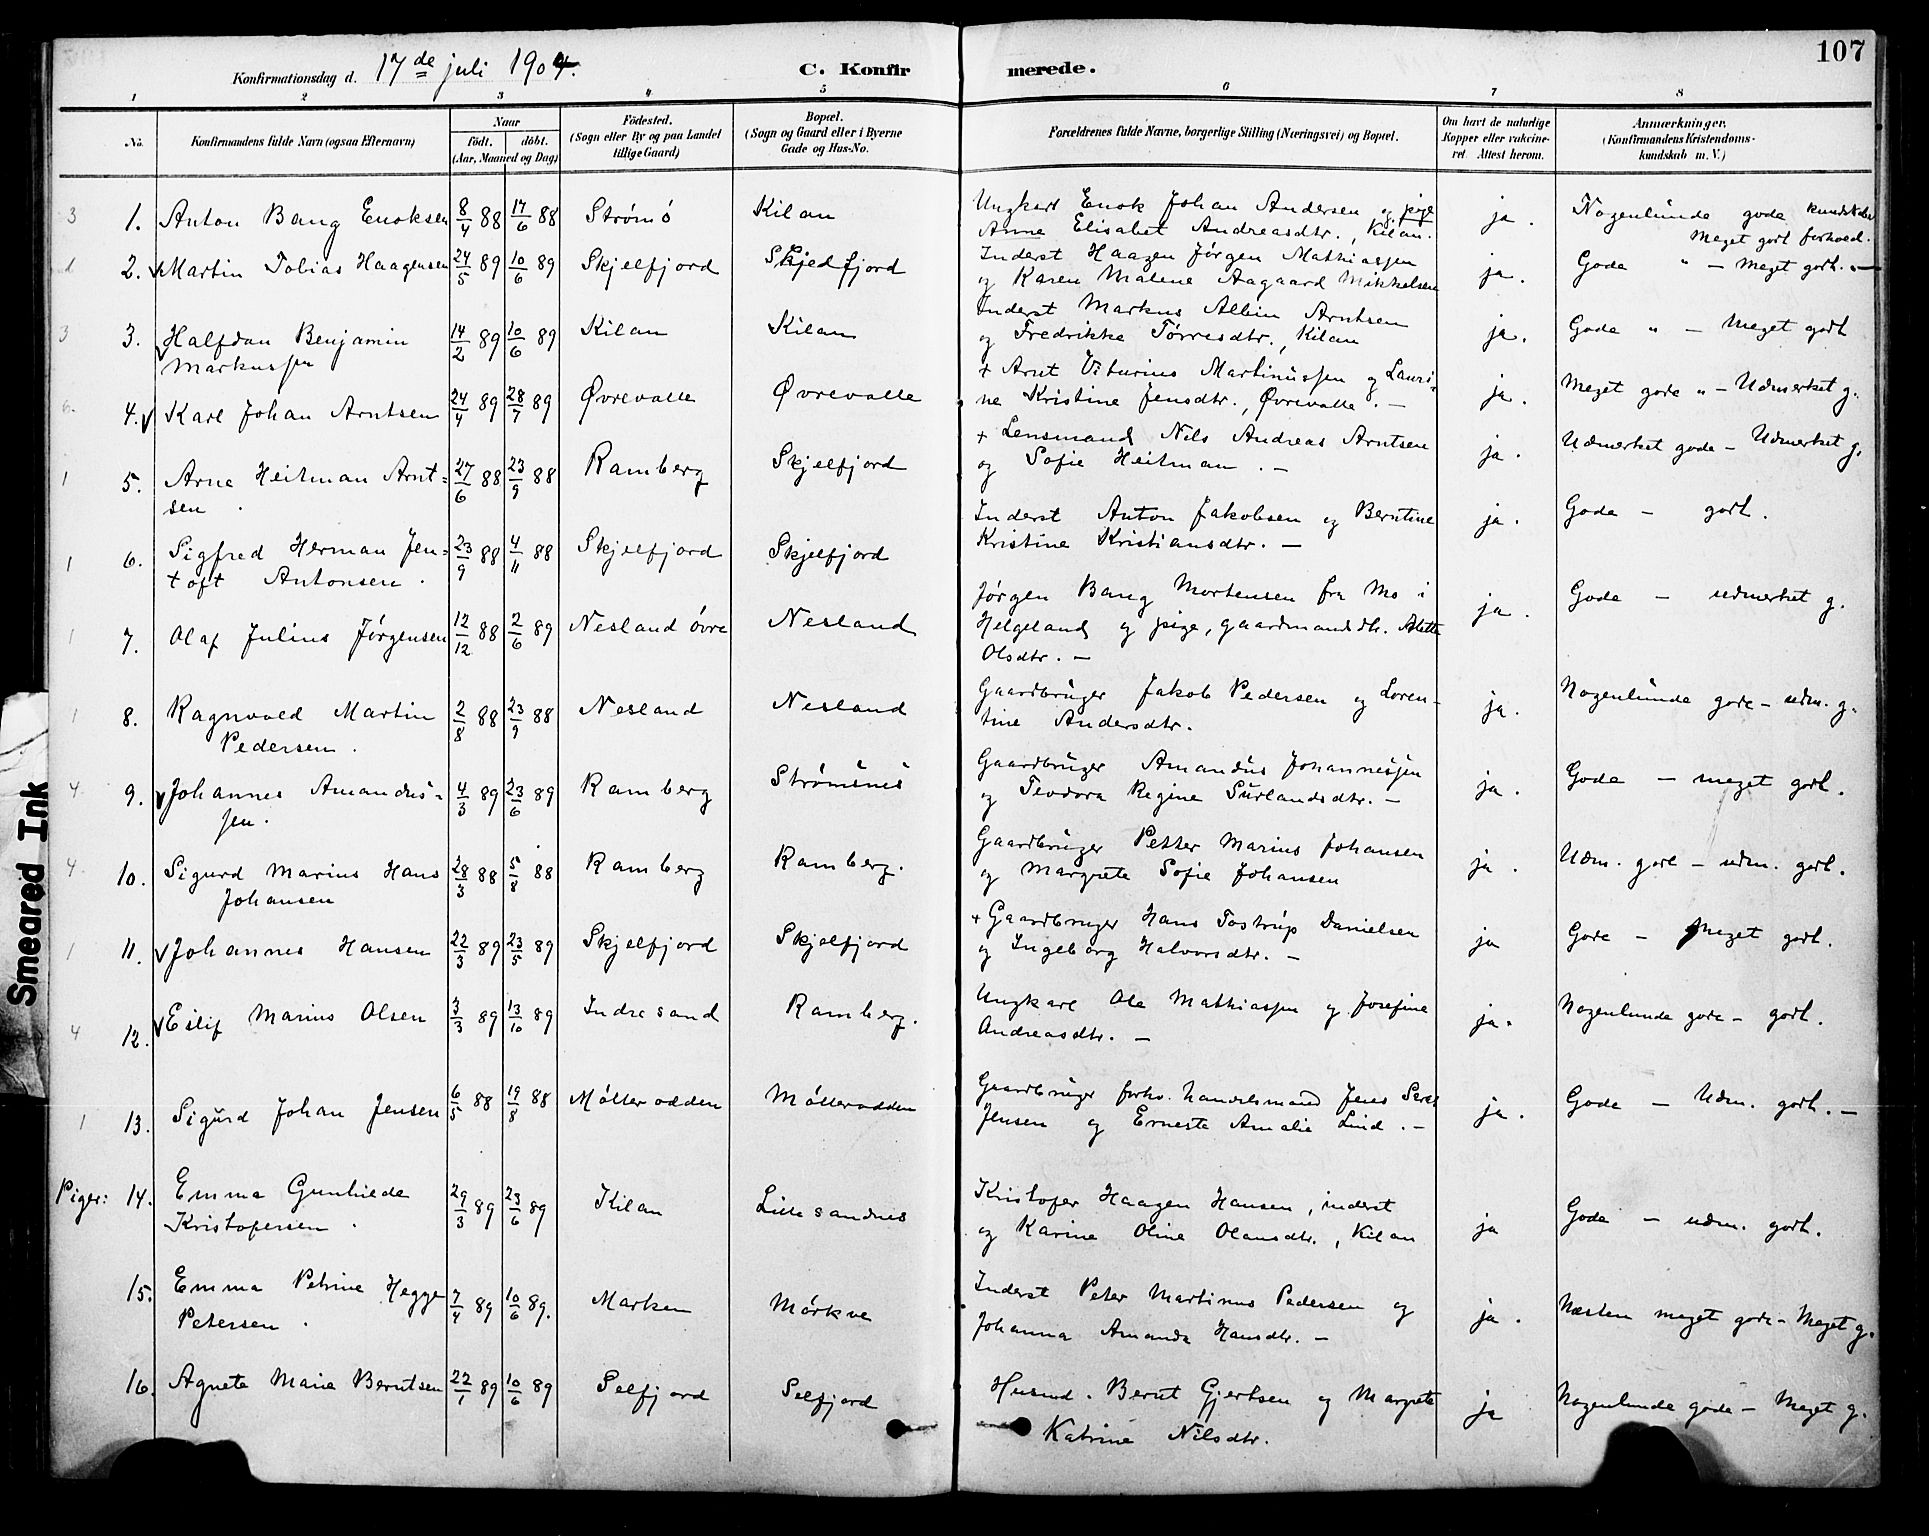 107
Konfirmationsdag d. 17de juli 1904. C. Konfirmerede.
1 2 3 4 5 6 7 8
No. Konfirmandens fulde Navn (ogsaa Efternavn) Naar født. døbt. (Aar, Maaned og Dag) Fødested. (Sogn eller By og paa Landet tillige Gaard) Bopæl. (Sogn og Gaard eller i Byerne Gade og Hus-No. Forældrenes fulde Navne, borgerlige Stilling (Næringsvei) og Bopæl. Om havt de naturlige Kopper eller vakcineret. Attest herom. Anmærkninger. (Konfirmandens Kristendomskundskab m. V.)
3 1. Anton Bang Enoksen 8/4 88 17/6 88 Strømö Kilan Ungkarl Enok Johan Andersen og pige ja. Nogenlunde gode kundskaber
Anne Elisabet Andreasdtr., Kilan. Meget godt forhold.
1 2. Martin Tobias Haagensen 24/5 89 10/6 89 Skjelfjord Skjelfjord Inderst Haagen Jørgen Mathiassen ja. Gode " — Meget godt. —
og Karen Malene Aagaard Mikkelsen
3 3. Halfdan Benjamin 14/2 89 10/6 89 Kilan Kilan Inderst Markus Albin Arntsen ja. Gode " — Meget godt
Markussen og Fredrikke Tørresdtr., Kilan
6. 4. Karl Johan Arntsen 24/4 89 28/7 89 Øvrevalle Øvrevalle + Arnt Viturius Martinussen og Lauri- ja. Meget gode " — Udmerket g.
ne Kristine Jensdtr., Øvrevalle. —
1 5. Arne Heitman Arnt- 27/6 88 23/9 88 Ramberg Skjelfjord + Lensmand Nils Andreas Arntsen ja. Udmerket gode — Udmerket g.
sen. og Sofie Heitman. —
1 6. Sigfred Herman Jen- 23/9 88 4/11 88 Skjelfjord Skjelfjord Inderst Anton Jakobsen og Berntine ja. Gode — godt.
toft Antonsen. Kristine Kristiansdtr. —
1 7. Olaf Julius Jørgensen 12/12 88 2/6 89 Nesland övre Nesland Jørgen Bang Mortensen fra Mo i ja. Gode — udmerket g.
Helgeland og pige, gaardmandsdtr. Alette
Olsdtr. —
1 8. Ragnvald Martin 2/8 88 23/9 88 Nesland Nesland Gaardbruger Jakob Pedersen og Loren- ja. Nogenlunde gode — udm. g.
Pedersen. tine Andersdtr.
4 9. Johannes Amandus- 4/3 89 23/6 89 Ramberg Strømsnes Gaardbruger Amandus Johannessen ja. Gode — meget godt.
sen. og Teodora Regine Surlandsdtr. —
4. 10. Sigurd Marius Hans 28/3 88 5/8 88 Ramberg Ramberg. Gaardbruger Petter Marius Johansen ja. Udm. gode — udm. godt.
Johansen og Margrete Sofie Johansen
1 11. Johannes Hansen 22/3 89 23/5 89 Skjelfjord Skjelfjord + Gaardbruger Hans Tostrup Danielsen ja Gode — Meget godt.
og Ingeborg Halvorsdtr. —
4 12. Eilif Marius Olsen 3/3 89 13/10 89 Indresand Ramberg. Ungkarl Ole Mathiassen og Josefine ja. Nogenlunde gode — godt.
Andreasdtr. —
1 13. Sigurd Johan Jensen 6/5 88 19/8 88 Mölterodden Mölterodden Gaardbruger forhv. handelsmand Jens ja. Gode — Udm. godt. —
Jensen og Erneste Amalie Lind. —
Piger: 14. Emma Gunhilde 29/3 89 23/6 89 Kilan Lillesandnes Kristofer Haagen Hansen, inderst ja Gode — udm. godt.
Kristofersen. og Karine Oline Olansdtr., Kilan
15. Emma Petrine Hegge 7/4 89 10/6 89. Marken Mörkve Inderst Peter Martinus Pedersen og ja. Næsten meget gode — Meget g.
Petersen. Johanna Amanda Hansdtr. —
16. Agnete Marie Berntsen 22/1 89 10/6 89 Selfjord Selfjord Husmd. Bernt Gjertsen og Margrete ja Nogenlunde gode — Meget g.
Katrine Nilsdtr.
Smeared Ink